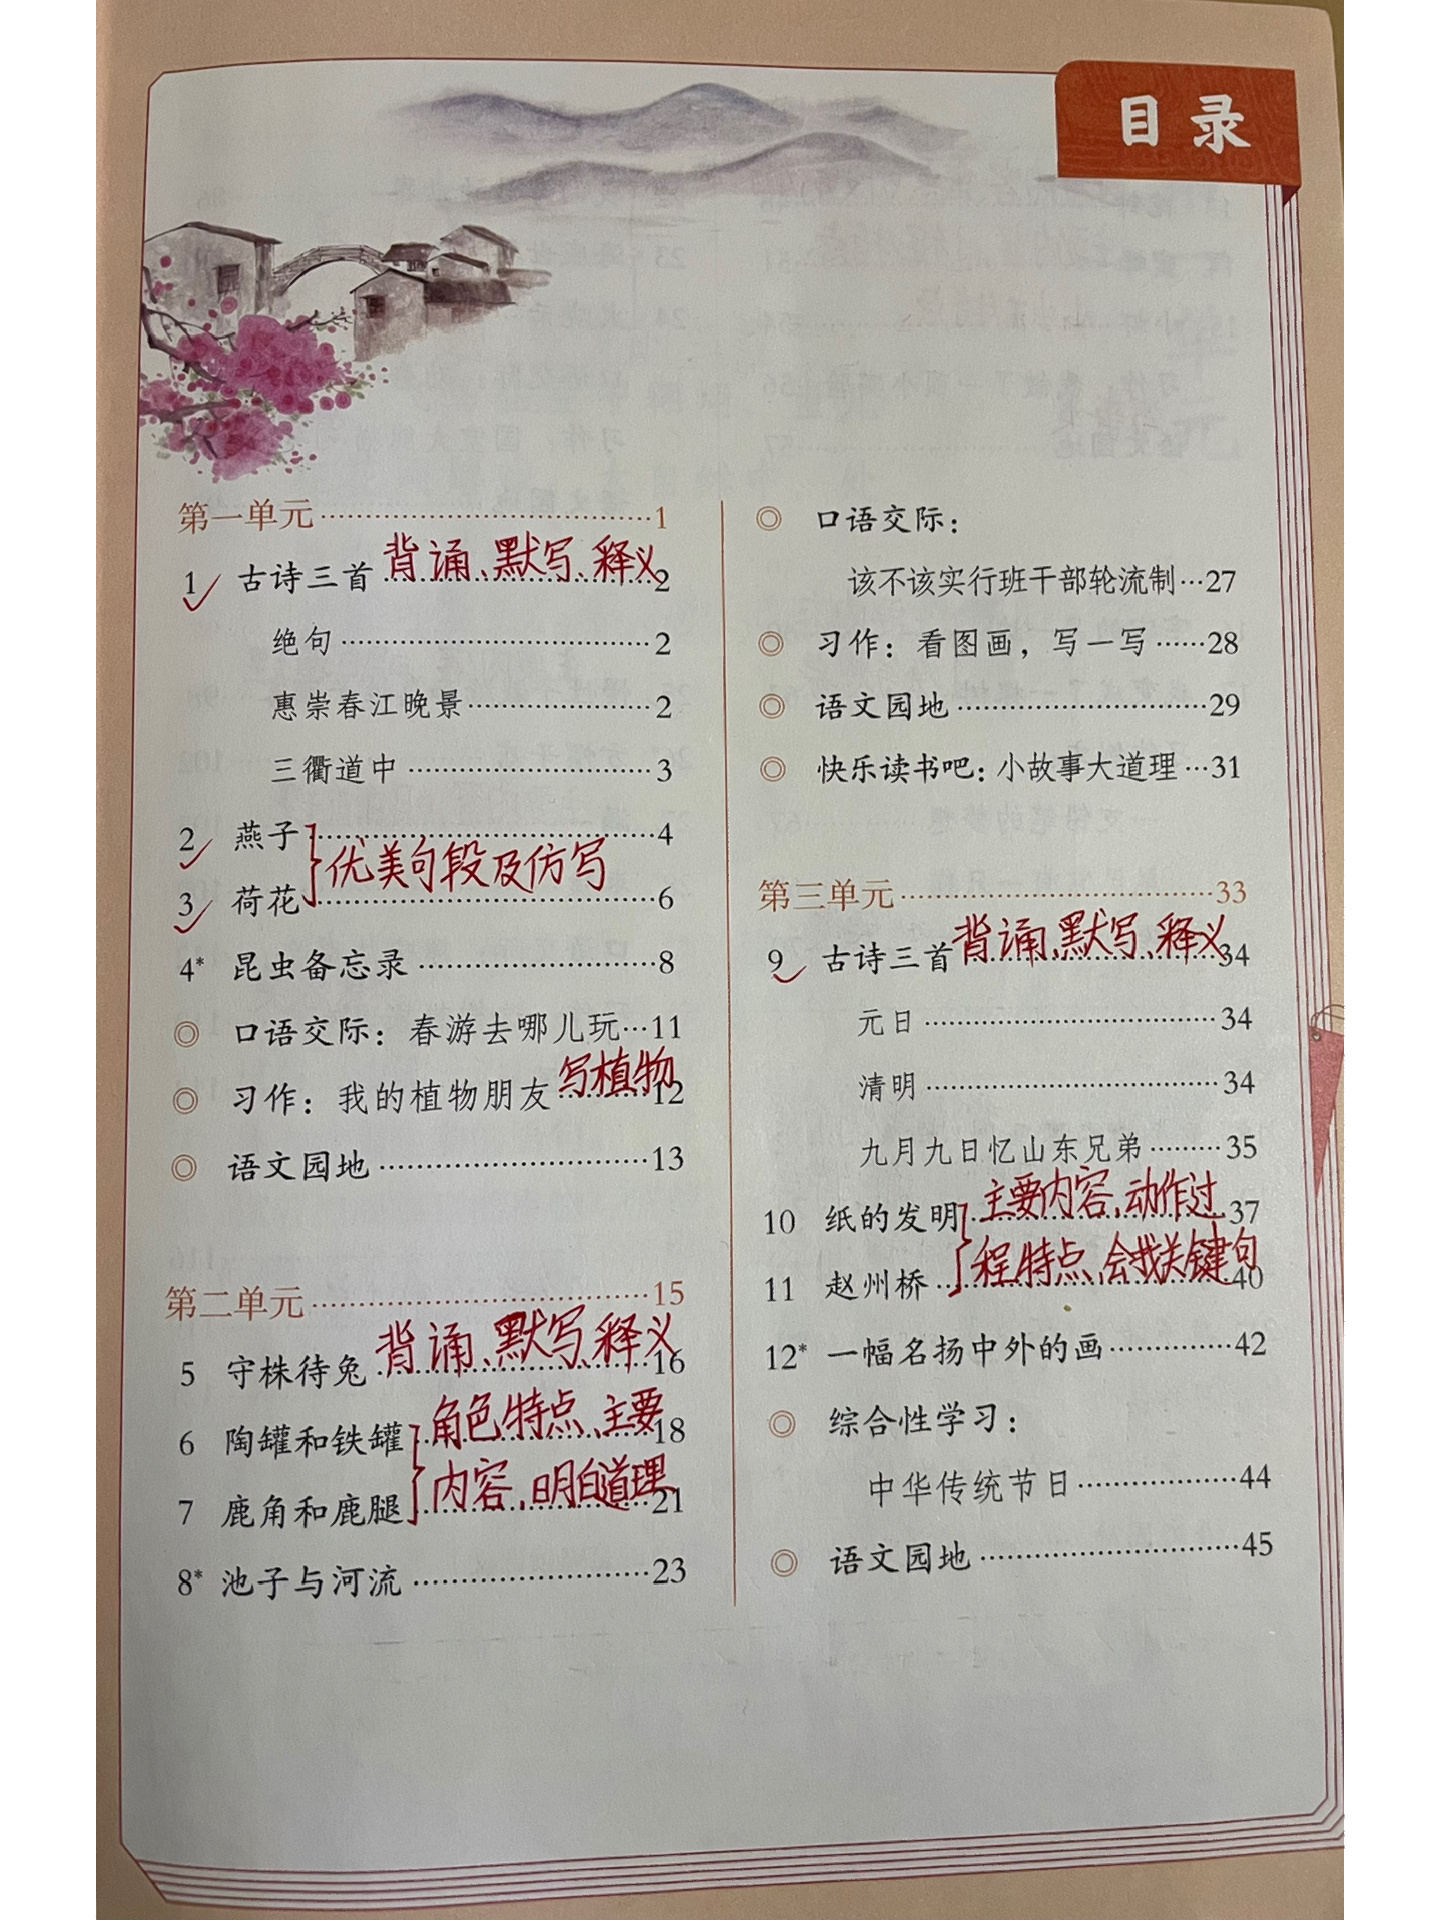 目录
第一单元……1
1 古诗三首……2 背诵、默写、释义
绝句……2
惠崇春江晚景……2
三衢道中……3
2 燕子……4
优美句段及仿写
3 荷花……6
4* 昆虫备忘录……8
◎ 口语交际：春游去哪儿玩…11
◎ 习作：我的植物朋友……12 写植物
◎ 语文园地……13
第二单元……15
5 守株待兔……16 背诵、默写、释义
6 陶罐和铁罐……18 角色特点、主要
7 鹿角和鹿腿……21 内容，明白道理
8* 池子与河流……23
◎ 口语交际：
该不该实行班干部轮流制…27
◎ 习作：看图画，写一写……28
◎ 语文园地……29
◎ 快乐读书吧：小故事大道理…31
第三单元……33
9 古诗三首……34 背诵、默写、释义
元日……34
清明……34
九月九日忆山东兄弟……35
10 纸的发明……37 主要内容，动作过
11 赵州桥……40 程，特点，会找关键句
12* 一幅名扬中外的画……42
◎ 综合性学习：
中华传统节日……44
◎ 语文园地……45